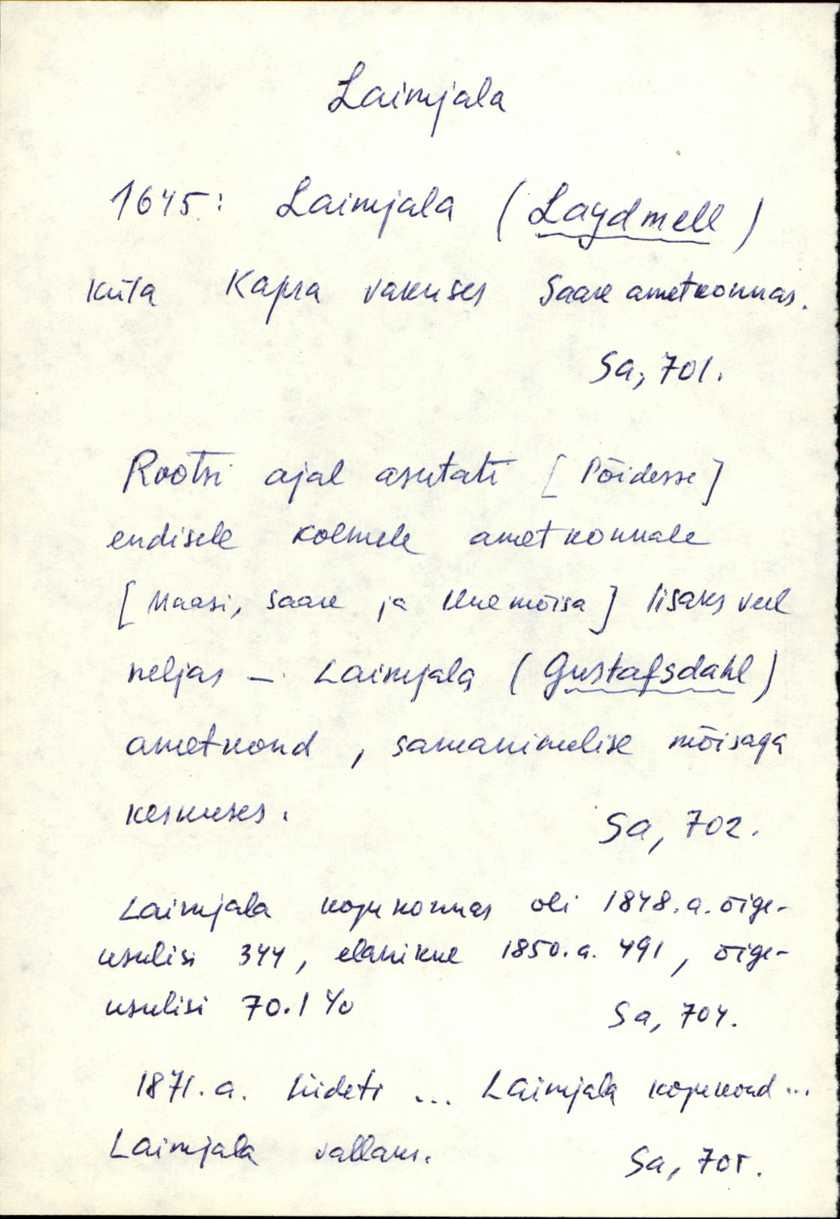 Laimjala
1645: Laimjala (Laydmell)
küla Kapra vakuses Saare ametkonnas.
Sa, 701.
Rootsi ajal asutati [Pöidesse]
endisele kolmele ametkonnale
[Maasi, Saare ja Uuemõisa] lisaks veel
neljas - Laimjala (Gustafsdahl)
ametkond, samanimelise mõisaga
keskuses.
Sa, 702.
Laimjala kogukonnas oli 1848.a. õige-
usulisi 344, elanikke 1850.a. 491, õige-
usulisi 70.1%
Sa, 704.
1871.a. liideti ... Laimjala kogukond ...
Laimjala vallaks.
Sa, 705.